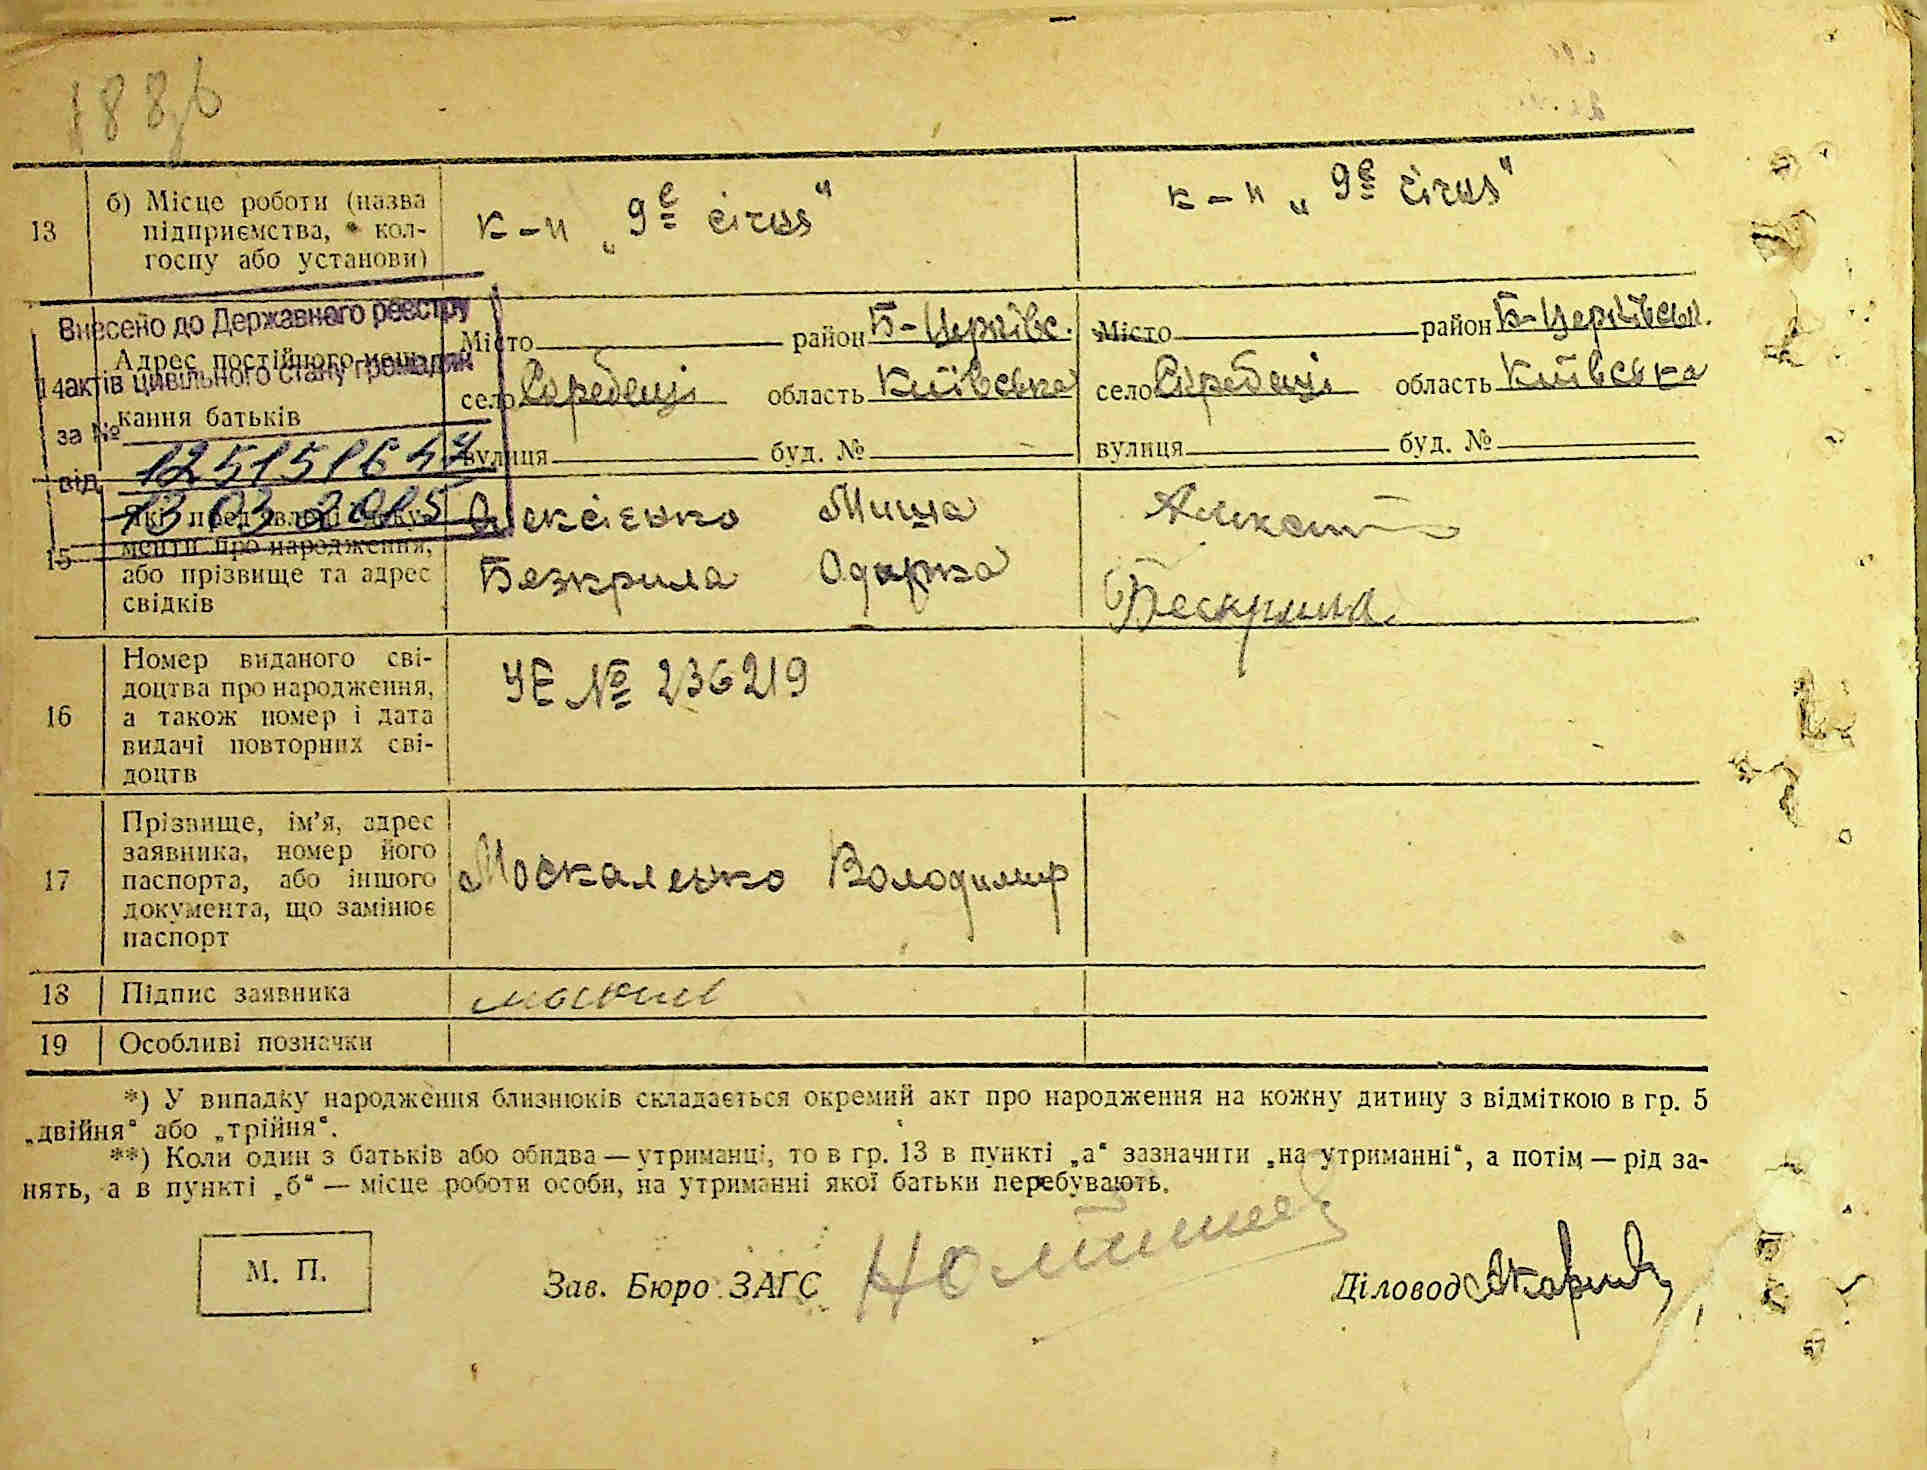 188
13 б) Місце роботи (назва підприємства, * кол-госпу або установи)
к-п „9е січня" к-п „9е січня"
Внесено до Державного реєстру
актів цивільного стану громадян
за № 125151647
від 13 03 2015
14 Адрес постійного меш-
кання батьків
Місто район Б-Церківс. Місто район Б-Церківськ.
село область Київська село область Київська
вулиця буд. № вулиця буд. №
15 Які пред'явлені доку-
менти про народження,
або прізвище та адрес
свідків
Олексієнко Миша
Безкрила Одарка Бескрила
16 Номер виданого сві-
доцтва про народження,
а також номер і дата
видачі повторних сві-
доцтв
УЕ № 236219
17 Прізвище, ім'я, адрес
заявника, номер його
паспорта, або іншого
документа, що замінює
паспорт
Москаленко Володимир
18 Підпис заявника
19 Особливі позначки
*) У випадку народження близнюків складається окремий акт про народження на кожну дитину з відміткою в гр. 5
„двійня" або „трійня".
**) Коли один з батьків або обидва — утриманці, то в гр. 13 в пункті „а" зазначити „на утриманні", а потім — рід за-
нять, а в пункті „б" — місце роботи особи, на утриманні якої батьки перебувають.
М. П. Зав. Бюро ЗАГС Діловод